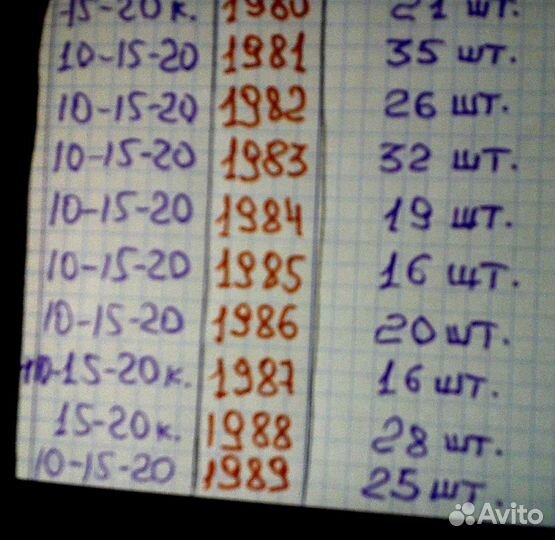 15-20 к. 1980 21 шт.
10-15-20 1981 35 шт.
10-15-20 1982 26 шт.
10-15-20 1983 32 шт.
10-15-20 1984 19 шт.
10-15-20 1985 16 шт.
10-15-20 1986 20 шт.
10-15-20 к. 1987 16 шт.
15-20 к. 1988 28 шт.
10-15-20 1989 25 шт.
Avito